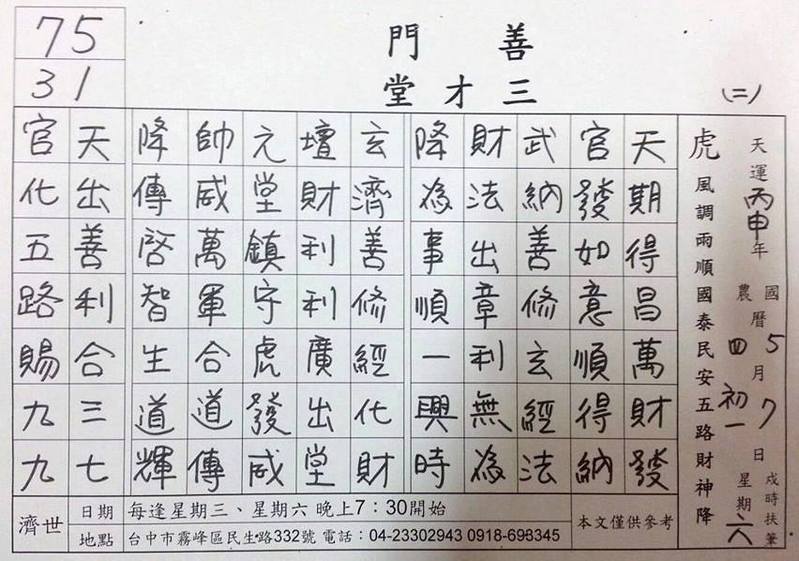 75
31
善門
三才堂
(二)
天運丙申年
國曆5月7日
農四初一
星期六
戌時扶筆
虎風調雨順國泰民安五路財神降
天期得昌萬財發
官發如意順得納
武納善修玄經法
財法出章利無為
降為事順一興時
玄濟善修經化財
壇財利利廣出堂
元堂鎮守虎發威
帥威萬軍合道傳
降傳啓智生道輝
天出善利合三七
官化五路賜九九
濟世
日期 每逢星期三、星期六 晚上7：30開始
地點 台中市霧峰區民生路332號 電話：04-23302943 0918-698345
本文僅供參考